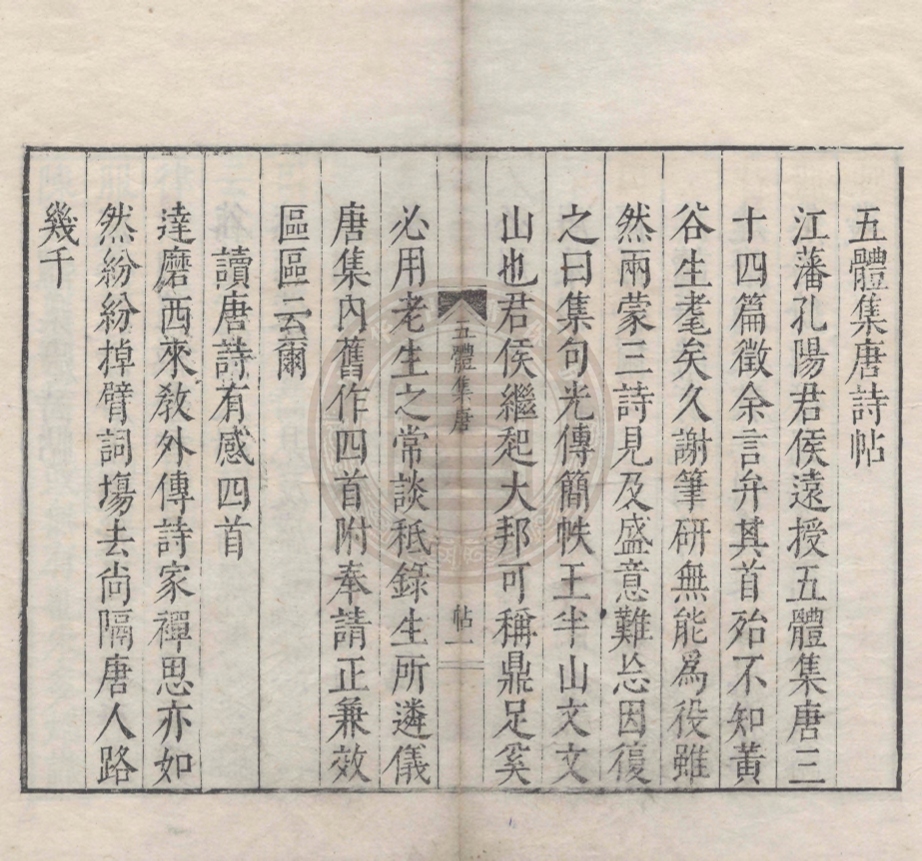 五體集唐詩帖
江藩孔陽君侯遠授五體集唐三
十四篇徵余言弁其首殆不知黃
谷生耄矣久謝筆研無能爲役雖
然兩蒙三詩見及盛意難恝因復
之曰集句光傳簡帙王半山文文
山也君侯繼起大邦可稱鼎足奚
五體集唐
帖一
必用老生之常談秪錄生所遴儀
唐集內舊作四首附奉請正兼效
區區云爾
讀唐詩有感四首
達磨西來教外傳詩家禪思亦如
然紛紛掉臂詞塲去尚隔唐人路
幾千